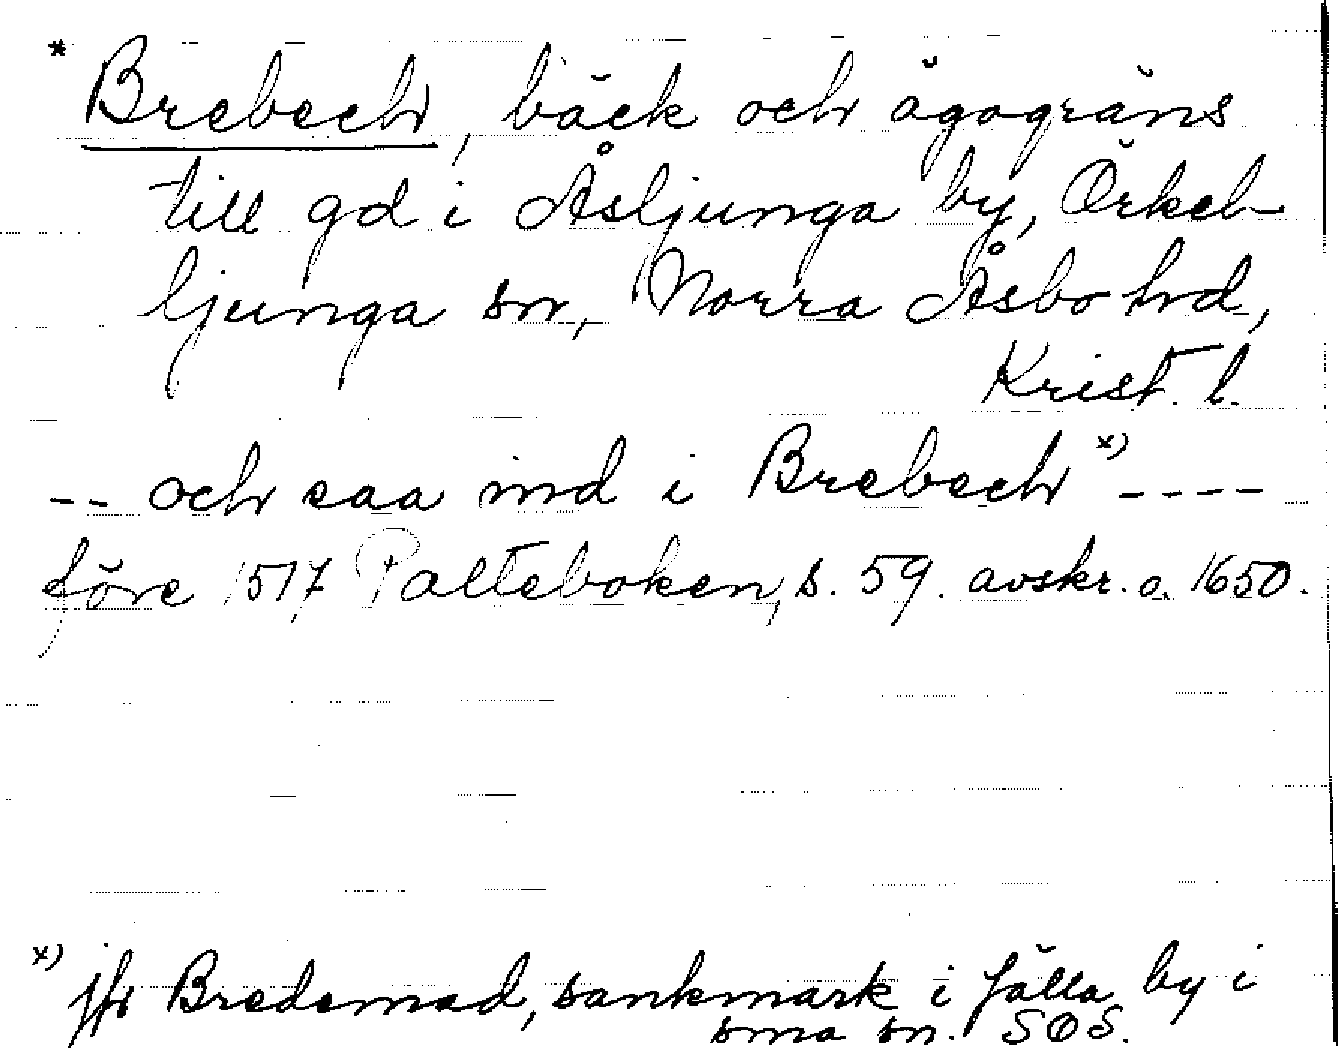 * Brebech, bäck och ägogräns
till gd i Åsljunga by, Örkel-
ljunga sn, Norra Åsbo hd,
Krist. l.
-- och saa ind i Brebech x) ----
före 1517 Palteboken, s. 59. avskr. o. 1650.
x) jfr Bredemad, sankmark i Fälla by i
sma sn. SOS.